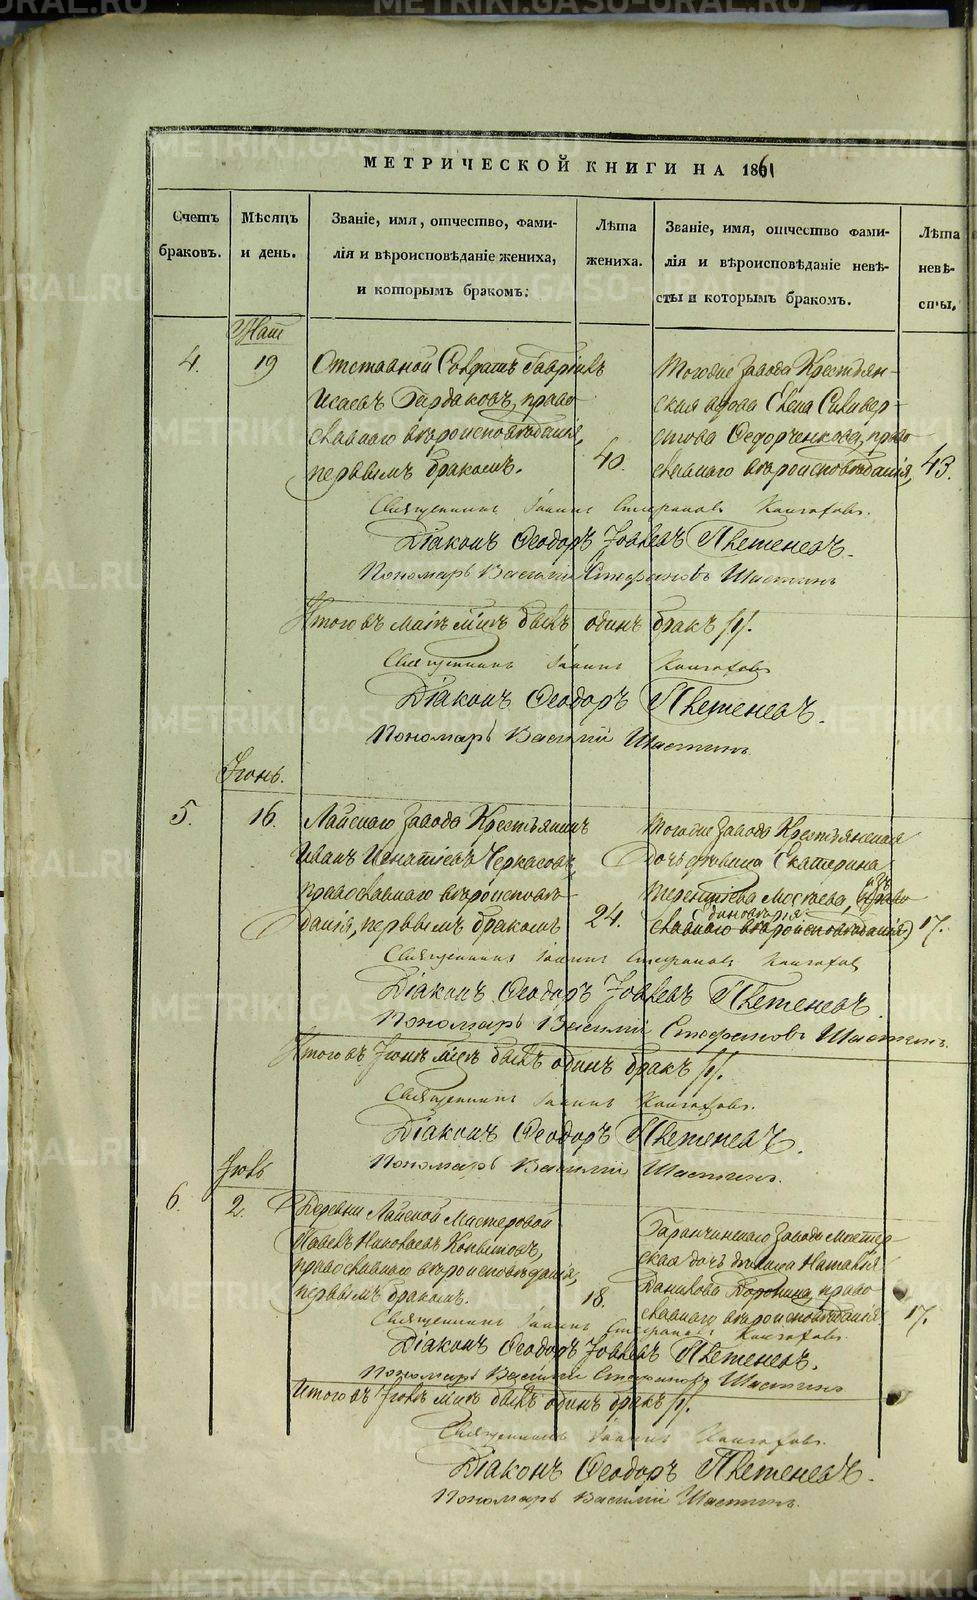 МЕТРИЧЕСКОЙ КНИГИ НА 1861
Счетъ браковъ.
Мѣсяцъ и день.
Званіе, имя, отчество, фами-
лія и вѣроисповѣданіе жениха,
и которымъ бракомъ.
Лѣта жениха.
Званіе, имя, отчество фами-
лія и вѣроисповѣданіе невѣ-
сты и которымъ бракомъ.
Лѣта невѣ-
сты.
Маій
4. 19
Отставной Солдатъ Гавріилъ
Исаевъ Бардаковъ, право
славнаго вѣроисповѣданія,
первымъ бракомъ.
40.
Тогоже завода Крестьян-
ская вдова Елена Силивер-
стова Федорченкова, право
славнаго вѣроисповѣданія,
43.
Священникъ Іоаннъ Стефановъ
Діаконъ Ѳеодоръ Іовлевъ
Пономарь Василій Стефановъ Шастинъ
Итого въ маіѣ м҃цѣ былъ одинъ бракъ /1/.
Священникъ Іоаннъ
Діаконъ Ѳеодоръ
Пономарь Василій Шастинъ.
Іюнь.
5. 16.
Лайскаго завода Крестьянинъ
Иванъ Игнатіевъ Черкасовъ,
православнаго вѣроисповѣ-
данія, первымъ бракомъ
24.
Тогоже завода Крестьянская
дочь дѣвица Екатерина
Терентіева Мосѣева, изъ право
единовѣрія
славнаго вѣроисповѣданія)
17.
Священникъ Іоаннъ Стефановъ
Діаконъ Ѳеодоръ Іовлевъ
Пономарь Василій Стефановъ Шастинъ.
Итого въ Іюнѣ м҃цѣ былъ одинъ бракъ /1/.
Священникъ Іоаннъ
Діаконъ Ѳеодоръ
Пономарь Василій Шастинъ.
Іюль
6. 2.
Деревни Лайской Мастеровой
Павелъ Николаевъ
православнаго вѣроисповѣданія,
первымъ бракомъ.
18.
Баранчинскаго завода мастер-
ская дочь дѣвица Наталія
Данилова Доронина, право
славнаго вѣроисповѣданія
17.
Священникъ Іоаннъ Стефановъ
Діаконъ Ѳеодоръ Іовлевъ
Пономарь Василій Стефановъ Шастинъ
Итого въ Іюлѣ м҃цѣ былъ одинъ бракъ /1/.
Священникъ Іоаннъ
Діаконъ Ѳеодоръ
Пономарь Василій Шастинъ.
METRIKI.GASO-URAL.RU